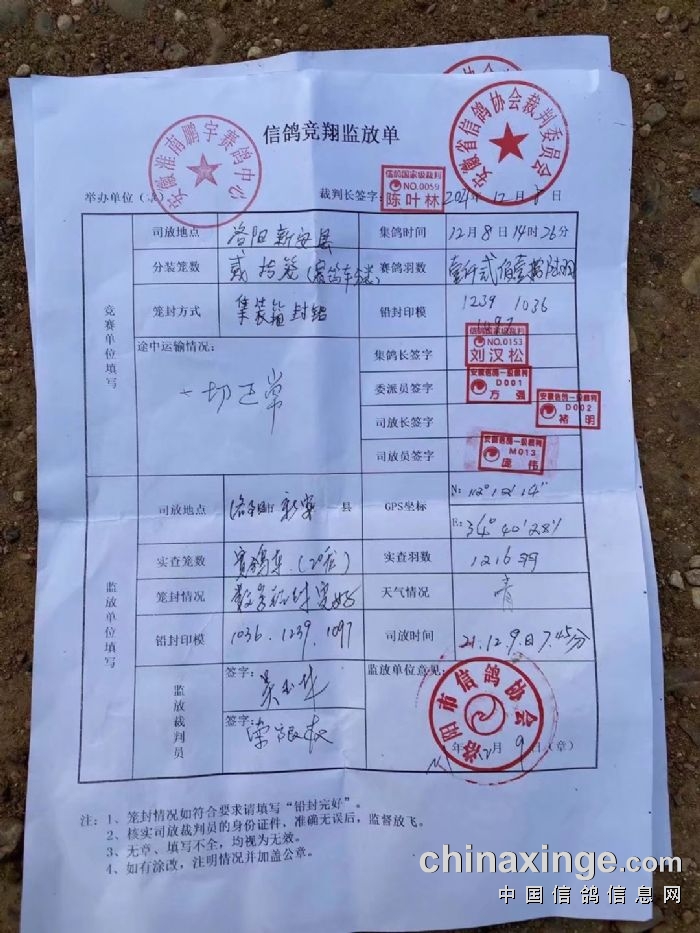 信鸽竞翔监放单
安徽淮南鹏宇赛鸽中心
安徽省信鸽协会裁判委员会
举办单位（章）
裁判长签字：
信鸽国家级裁判
NO.0059
陈叶林
2021年12月8日
竞赛单位填写
司放地点 洛阳新安县 集鸽时间 12月8日14时26分
分装笼数 贰拾笼 赛鸽羽数 壹仟贰佰壹拾陆羽
笼封方式 集装箱封铅 铅封印模 1239 1036
1097
途中运输情况：
一切正常
集鸽长签字
信鸽国家级裁判
NO.0153
刘汉松
委派员签字
安徽信鸽一级裁判
D001
方强
司放长签字
安徽信鸽一级裁判
D002
褚明
司放员签字
安徽信鸽一级裁判
M013
庞伟
监放单位填写
司放地点 洛阳市新安县 GPS坐标 N:112°12′14″
E:34°40′28″
实查笼数 赛鸽车（20笼） 实查羽数 1216羽
笼封情况 天气情况
铅封印模 1036.1239.1097 司放时间 21.12.9日7.45分
监放裁判员
签字：
签字：
监放单位意见：
洛阳市信鸽协会
年12月9日（章）
注：1、笼封情况如符合要求请填写“铅封完好”。
2、核实司放裁判员的身份证件，准确无误后，监督放飞。
3、无章、填写不全，均视为无效。
4、如有涂改，注明情况并加盖公章。
chinaxinge.com
中国信鸽信息网